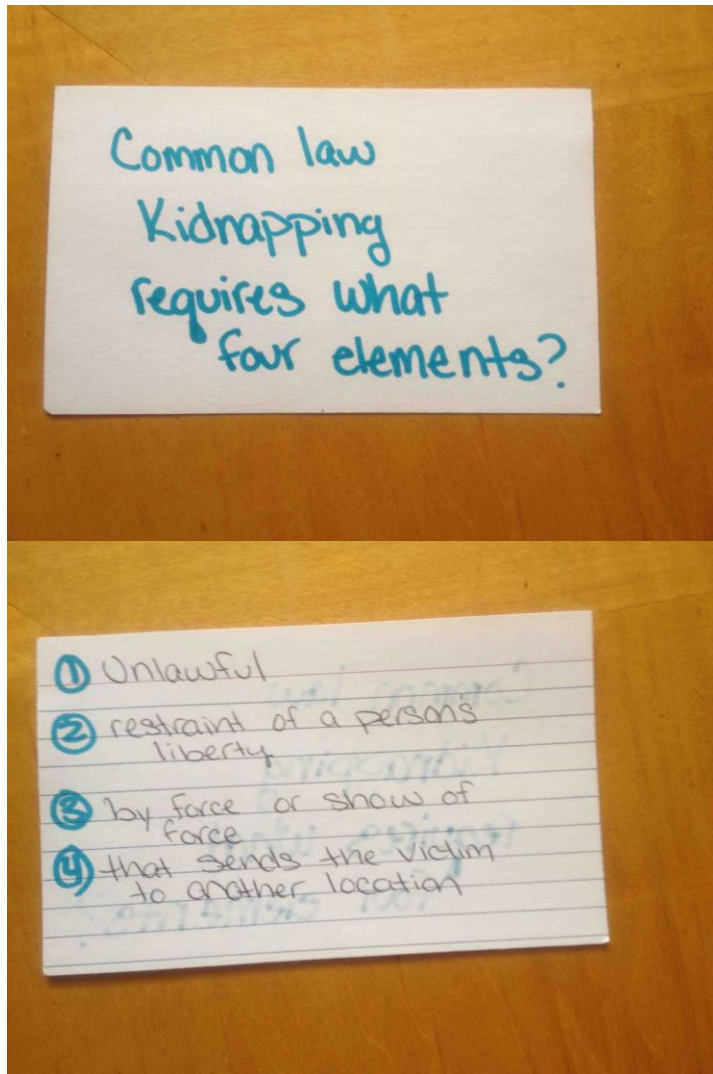 Common law
Kidnapping
requires what
four elements?
① Unlawful
② restraint of a person's
liberty
③ by force or show of
force
④ that sends the victim
to another location